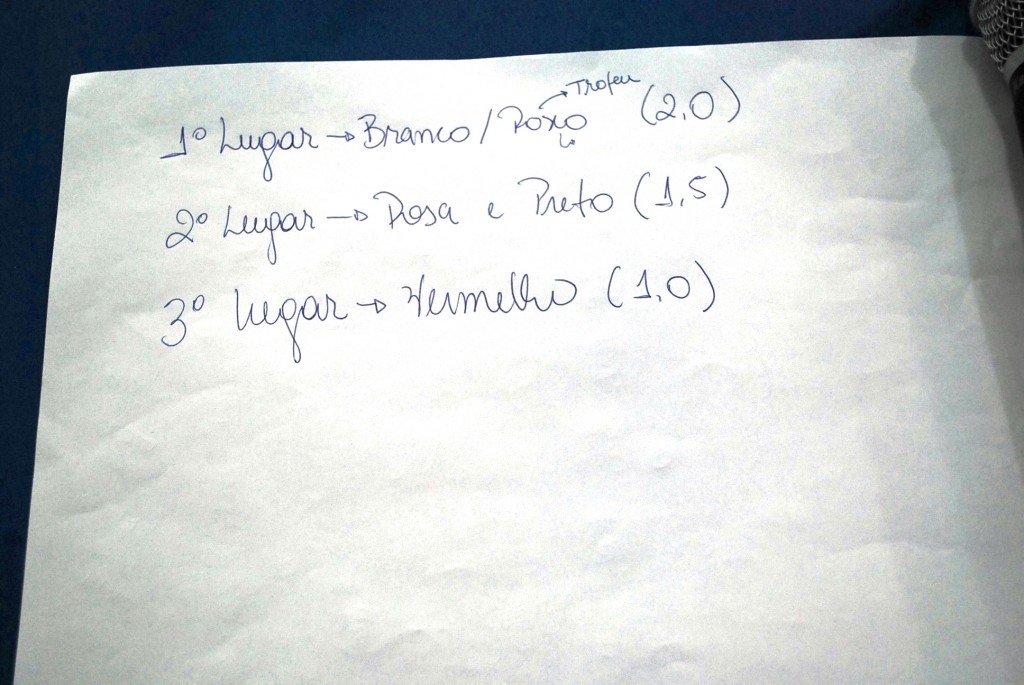 Trofeu
1º Lugar → Branco / Roxo (2,0)
2º Lugar → Rosa e Preto (1,5)
3º lugar → Vermelho (1,0)